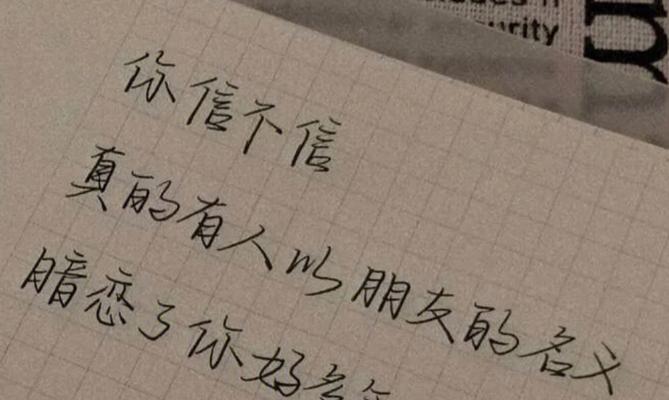 urity
m
你信不信
真的有人以朋友的名义
暗恋了你好多年